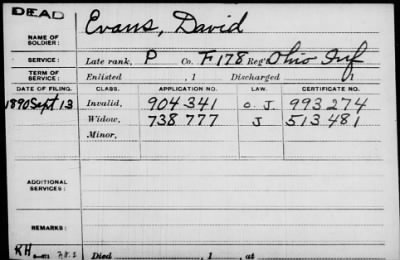 DEAD
NAME OF SOLDIER: Evans, David
SERVICE: Late rank, P Co. F 178 Reg't Ohio Inf
TERM OF SERVICE: Enlisted , 1 Discharged , 1
DATE OF FILING. CLASS. APPLICATION NO. LAW. CERTIFICATE NO.
1890 Sept 13 Invalid, 904 341 O. J. 993 274
Widow, 738 777 J 513 481
Minor,
ADDITIONAL SERVICES:
REMARKS:
KH
Died , 1 , at